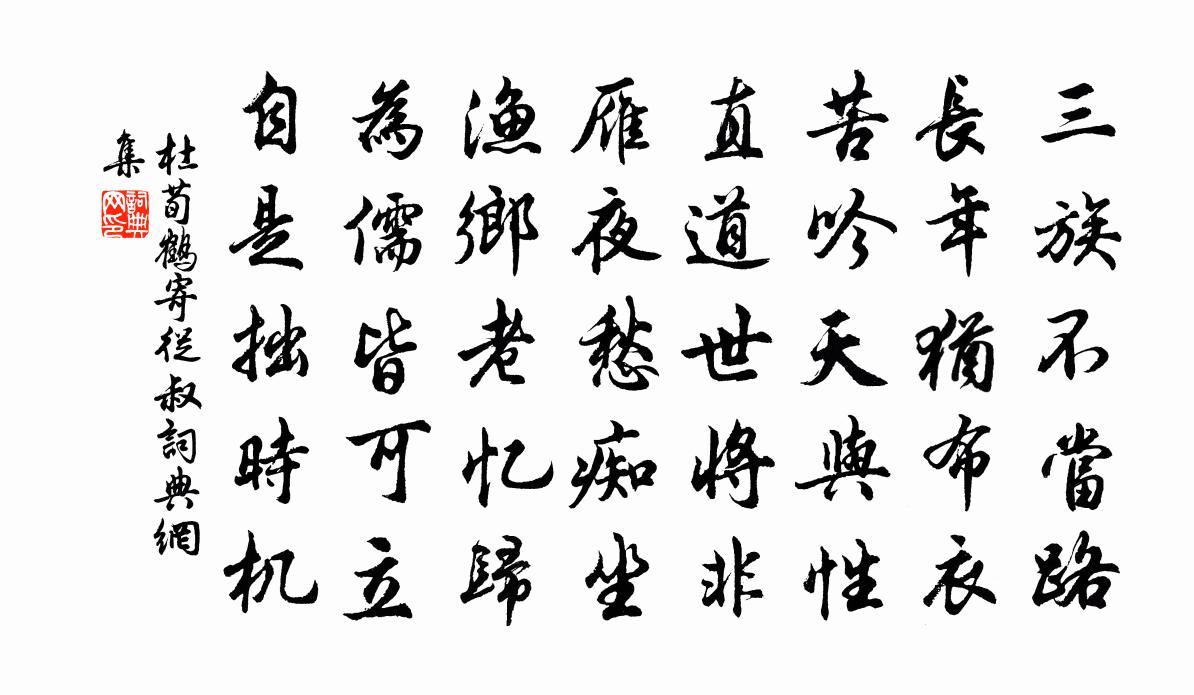 三族不當路
長年猶布衣
苦吟天與性
直道世將非
雁夜愁痴坐
漁鄉老忆歸
為儒皆可立
自是拙時机
杜荀鶴寄從叔詞典網
集
詞典
网印